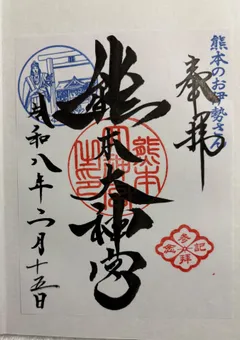 熊本のお伊勢さん
奉拝
熊本大神宮
令和八年二月十五日
参拝記念